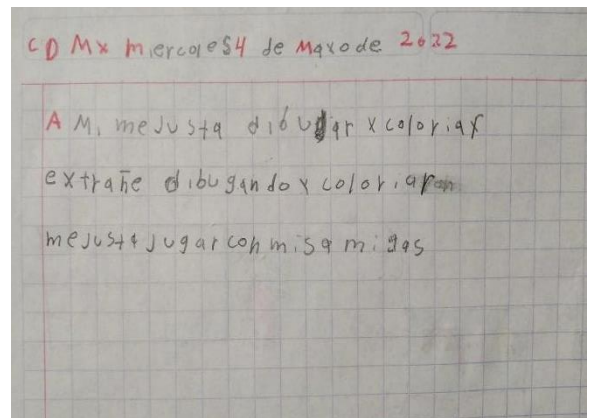 CD Mx miercoles 4 de Mayo de 2022
A Mi me justa dibugar y coloriar
extrañe dibugando y coloriar
me justa jugar con mis amigas